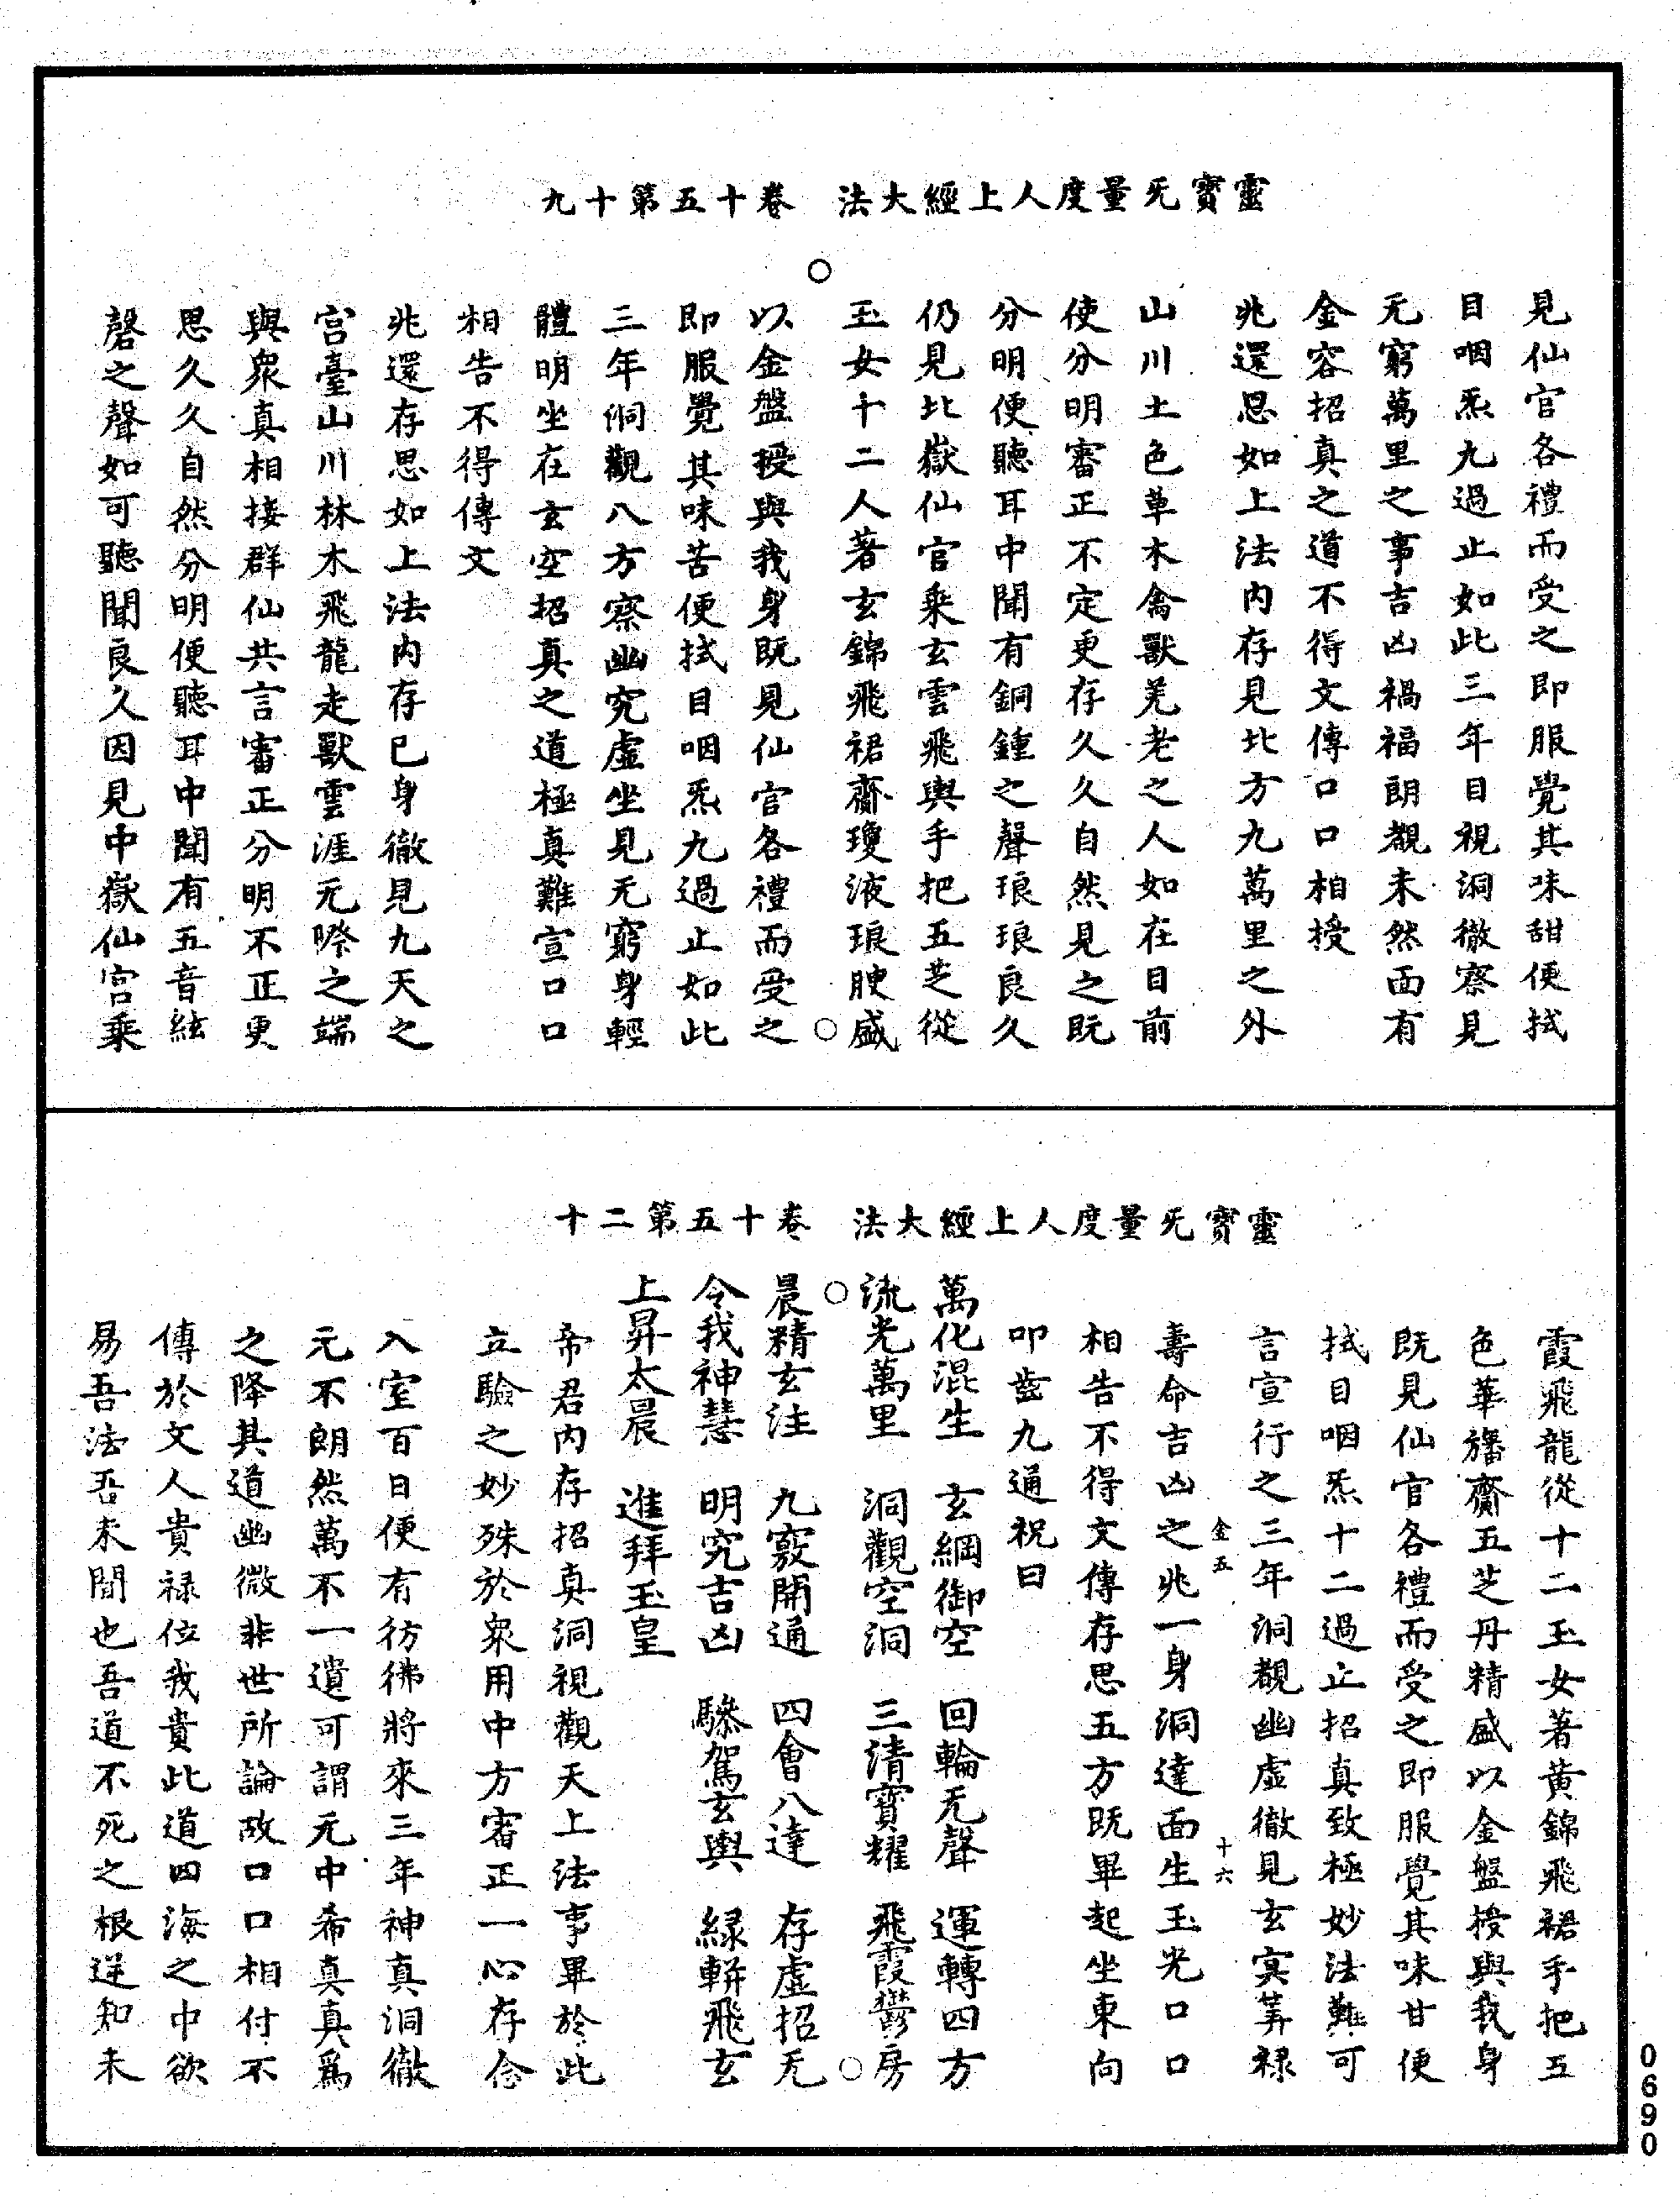 靈寶旡量度人上經大法　卷十五第十九
見仙官各禮而受之即服覺其味甜便拭
目咽炁九過止如此三年目視洞徹察見
无窮萬里之事吉凶禍福朗覩未然面有
金容招真之道不得文傳口口相授
兆還思如上法內存見北方九萬里之外
山川土色草木禽獸羌老之人如在目前
使分明審正不定更存久久自然見之既
分明便聽耳中聞有銅鍾之聲琅琅良久
仍見北嶽仙官乘玄雲飛輿手把五芝從
玉女十二人著玄錦飛裙齎瓊液琅腴盛
以金盤授與我身既見仙官各禮而受之
即服覺其味苦便拭目咽炁九過止如此
三年洞觀八方察幽究虛坐見无窮身輕
體明坐在玄空招真之道極真難宣口口
相告不得傳文
兆還存思如上法內存己身徹見九天之
宮臺山川林木飛龍走獸雲涯无際之端
與衆真相接群仙共言審正分明不正更
思久久自然分明便聽耳中聞有五音絃
磬之聲如可聽聞良久因見中嶽仙官乘
靈寶旡量度人上經大法　卷十五第二十
霞飛龍從十二玉女著黃錦飛裙手把五
色華旛齎五芝丹精盛以金盤授與我身
既見仙官各禮而受之即服覺其味甘便
拭目咽炁十二過止招真致極妙法難可
言宣行之三年洞觀幽虛徹見玄冥筭祿
金五　十六
壽命吉凶之兆一身洞達面生玉光口口
相告不得文傳存思五方既畢起坐東向
叩齒九通祝曰
萬化混生　玄綱御空　回輪无聲　運轉四方
流光萬里　洞觀空洞　三清寶耀　飛霞鬱房
晨精玄注　九竅開通　四會八達　存虛招无
令我神慧　明究吉凶　驂駕玄輿　綠軿飛玄
上昇太晨　進拜玉皇
帝君內存招真洞視觀天上法事畢於此
立驗之妙殊於衆用中方審正一心存念
入室百日便有彷彿將來三年神真洞徹
元不朗然萬不一遺可謂元中希真真爲
之降其道幽微非世所論故口口相付不
傳於文人貴祿位我貴此道四海之中欲
易吾法吾未聞也吾道不死之根逆知未
0690